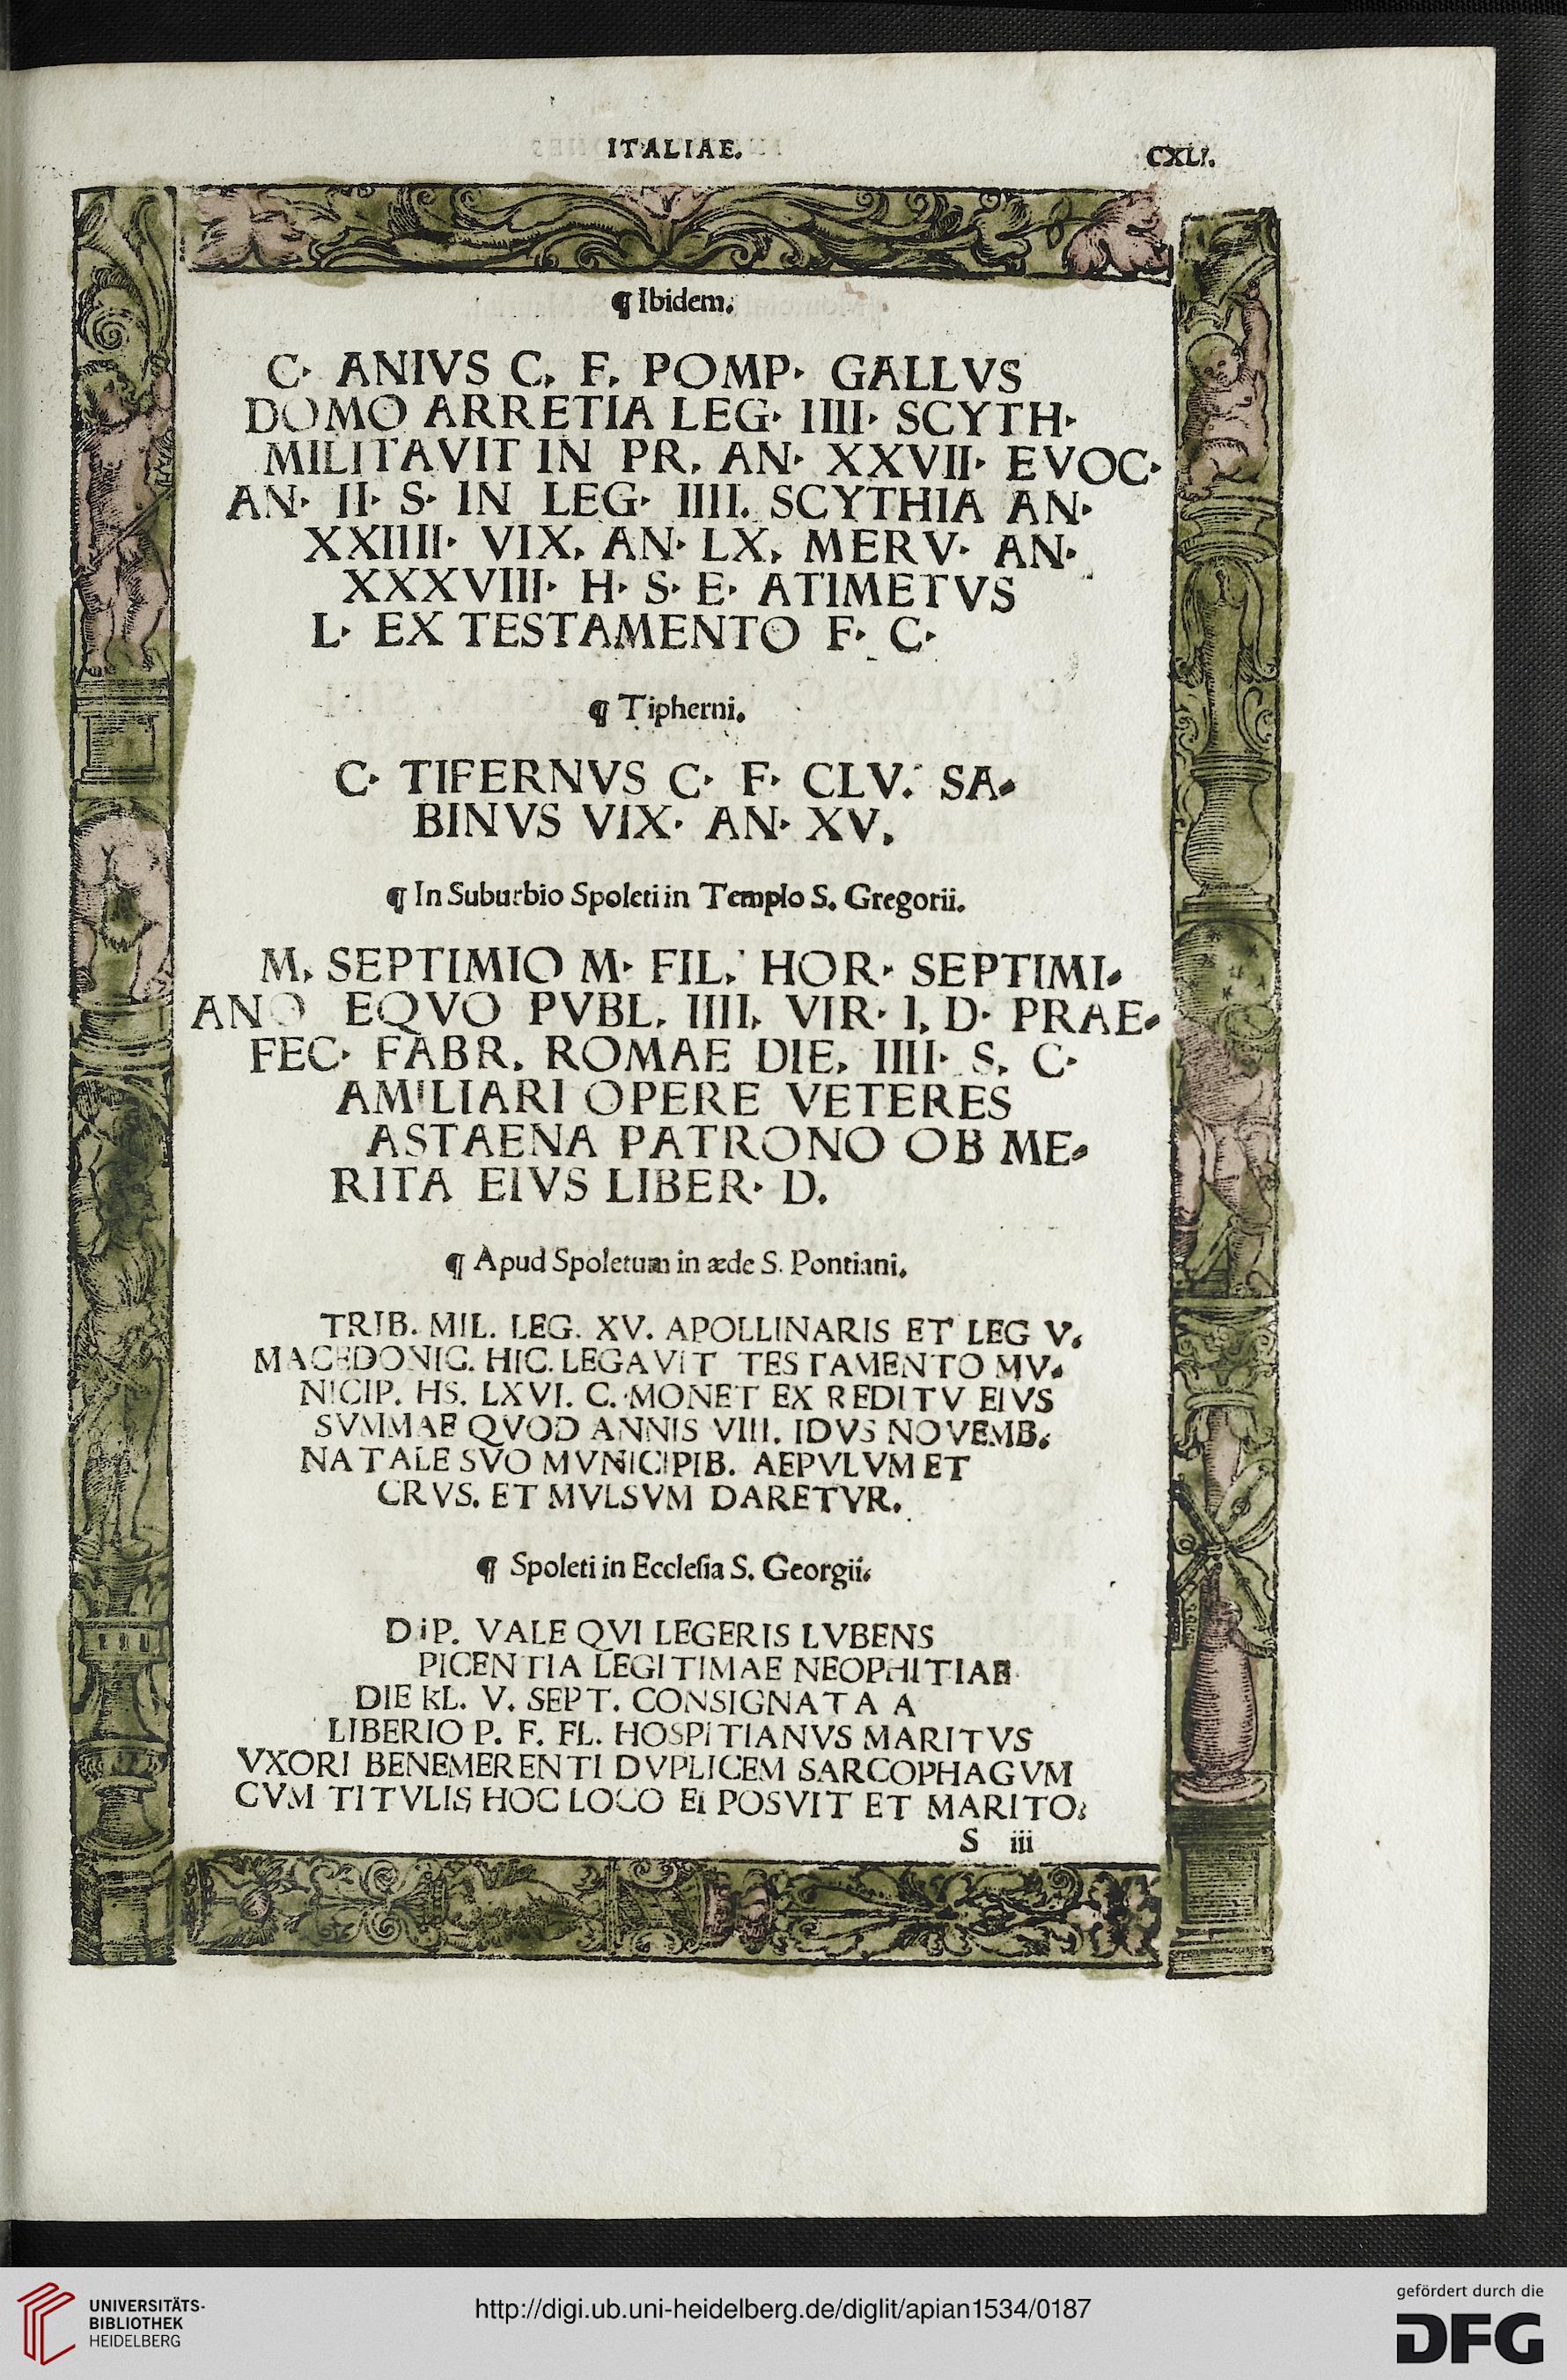 ITALIAE.
CXLI.
¶ Ibidem.
C· ANIVS C. F. POMP· GALLVS
DOMO ARRETIA LEG· IIII· SCYTH·
MILITAVIT IN PR. AN· XXVII· EVOC·
AN· II· S· IN LEG· IIII. SCYTHIA AN·
XXIIII· VIX. AN· LX. MERV· AN·
XXXVIII· H· S· E· ATIMETVS
L· EX TESTAMENTO F· C·
¶ Tipherni.
C· TIFERNVS C· F· CLV. SA-
BINVS VIX· AN· XV.
¶ In Suburbio Spoleti in Templo S. Gregorii.
M. SEPTIMIO M· FIL. HOR· SEPTIMI-
ANO EQVO PVBL. IIII. VIR· I. D· PRAE-
FEC· FABR. ROMAE DIE. IIII· S. C·
AMILIARI OPERE VETERES
ASTAENA PATRONO OB ME-
RITA EIVS LIBER· D.
¶ Apud Spoletum in æde S. Pontiani.
TRIB. MIL. LEG. XV. APOLLINARIS ET LEG V.
MACEDONIC. HIC. LEGAVIT TESTAMENTO MV-
NICIP. HS. LXVI. C. MONET EX REDITV EIVS
SVMMAE QVOD ANNIS VIII. IDVS NOVEMB.
NATALE SVO MVNICIPIB. AEPVLVM ET
CRVS. ET MVLSVM DARETVR.
¶ Spoleti in Ecclesia S. Georgii.
DiP. VALE QVI LEGERIS LVBENS
PICENTIA LEGITIMAE NEOPHITIAE
DIE KL. V. SEPT. CONSIGNATA A
LIBERIO P. F. FL. HOSPITIANVS MARITVS
VXORI BENEMERENTI DVPLICEM SARCOPHAGVM
CVM TITVLIS HOC LOCO Ei POSVIT ET MARITO.
S iii
UNIVERSITÄTS-
BIBLIOTHEK
HEIDELBERG
http://digi.ub.uni-heidelberg.de/diglit/apian1534/0187
gefördert durch die
DFG